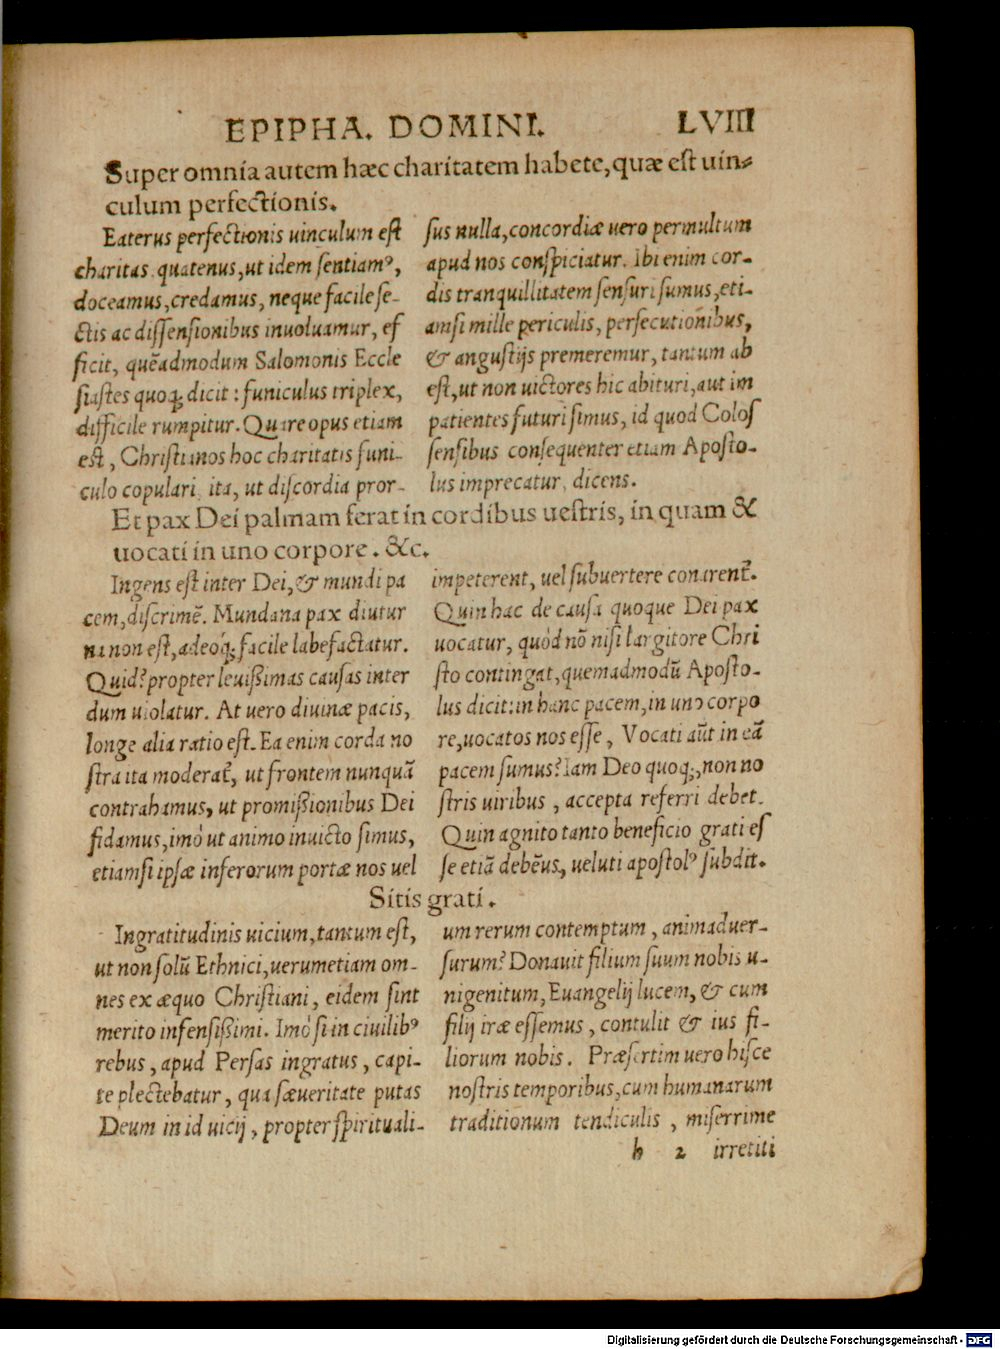 EPIPHA. DOMINI. LVIII
Super omnia autem hæc charitatem habete, quæ est uin⸗
culum perfectionis.
Eaterus perfectionis uinculum est
charitas. quatenus, ut idem sentiamꝰ,
doceamus, credamus, neque facile se-
ctis ac dissensionibus inuoluamur, ef
ficit, quẽadmodum Salomonis Eccle
siastes quoq; dicit: funiculus triplex,
difficile rumpitur. Quare opus etiam
est, Christianos hoc charitatis funi-
culo copulari ita, ut discordia pror-
sus nulla, concordiæ uero permultum
apud nos conspiciatur. Ibi enim cor-
dis tranquillitatem sensuri sumus, eti-
amsi mille periculis, persecutionibus,
& angustijs premeremur, tantum ab
est, ut non uictores hic abituri, aut im
patientes futuri simus, id quod Colos
sensibus consequenter etiam Aposto-
lus imprecatur, dicens.
Et pax Dei palmam ferat in cordibus uestris, in quam &
uocati in uno corpore. &c.
Ingens est inter Dei, & mundi pa
cem, discrimẽ. Mundana pax diutur
na non est, adeoq́; facile labefactatur.
Quid? propter leuißimas causas inter
dum uiolatur. At uero diuinæ pacis,
longe alia ratio est. Ea enim corda no
stra ita moderat᷑, ut frontem nunquã
contrahamus, ut promißionibus Dei
fidamus, imò ut animo inuicto simus,
etiamsi ipsæ inferorum portæ nos uel
impeterent, uel subuertere conarent᷑.
Quin hac de causa quoque Dei pax
uocatur, quòd nõ nisi largitore Chri
sto contingat, quemadmodũ Aposto-
lus dicit: in hanc pacem, in uno corpo
re, uocatos nos esse, Vocati aũt in eã
pacem sumus? Iam Deo quoq;, non no
stris uiribus, accepta referri debet.
Quin agnito tanto beneficio grati es
se etiã debẽus, ueluti apostolꝰ subdit.
Sitis grati.
Ingratitudinis uicium, tantum est,
ut non solũ Ethnici, uerumetiam om-
nes ex æquo Christiani, eidem sint
merito infensißimi. Imò si in ciuilibꝰ
rebus, apud Persas ingratus, capi-
te plectebatur, qua sæueritate putas
Deum in id uicij, propter spirituali-
um rerum contemptum, animaduer-
surum? Donauit filium suum nobis u-
nigenitum, Euangelij lucem, & cum
filij iræ essemus, contulit & ius fi-
liorum nobis. Præsertim uero hisce
nostris temporibus, cum humanarum
traditionum tendiculis, miserrime
h 2 irretiti
Digitalisierung gefördert durch die Deutsche Forschungsgemeinschaft - DFG